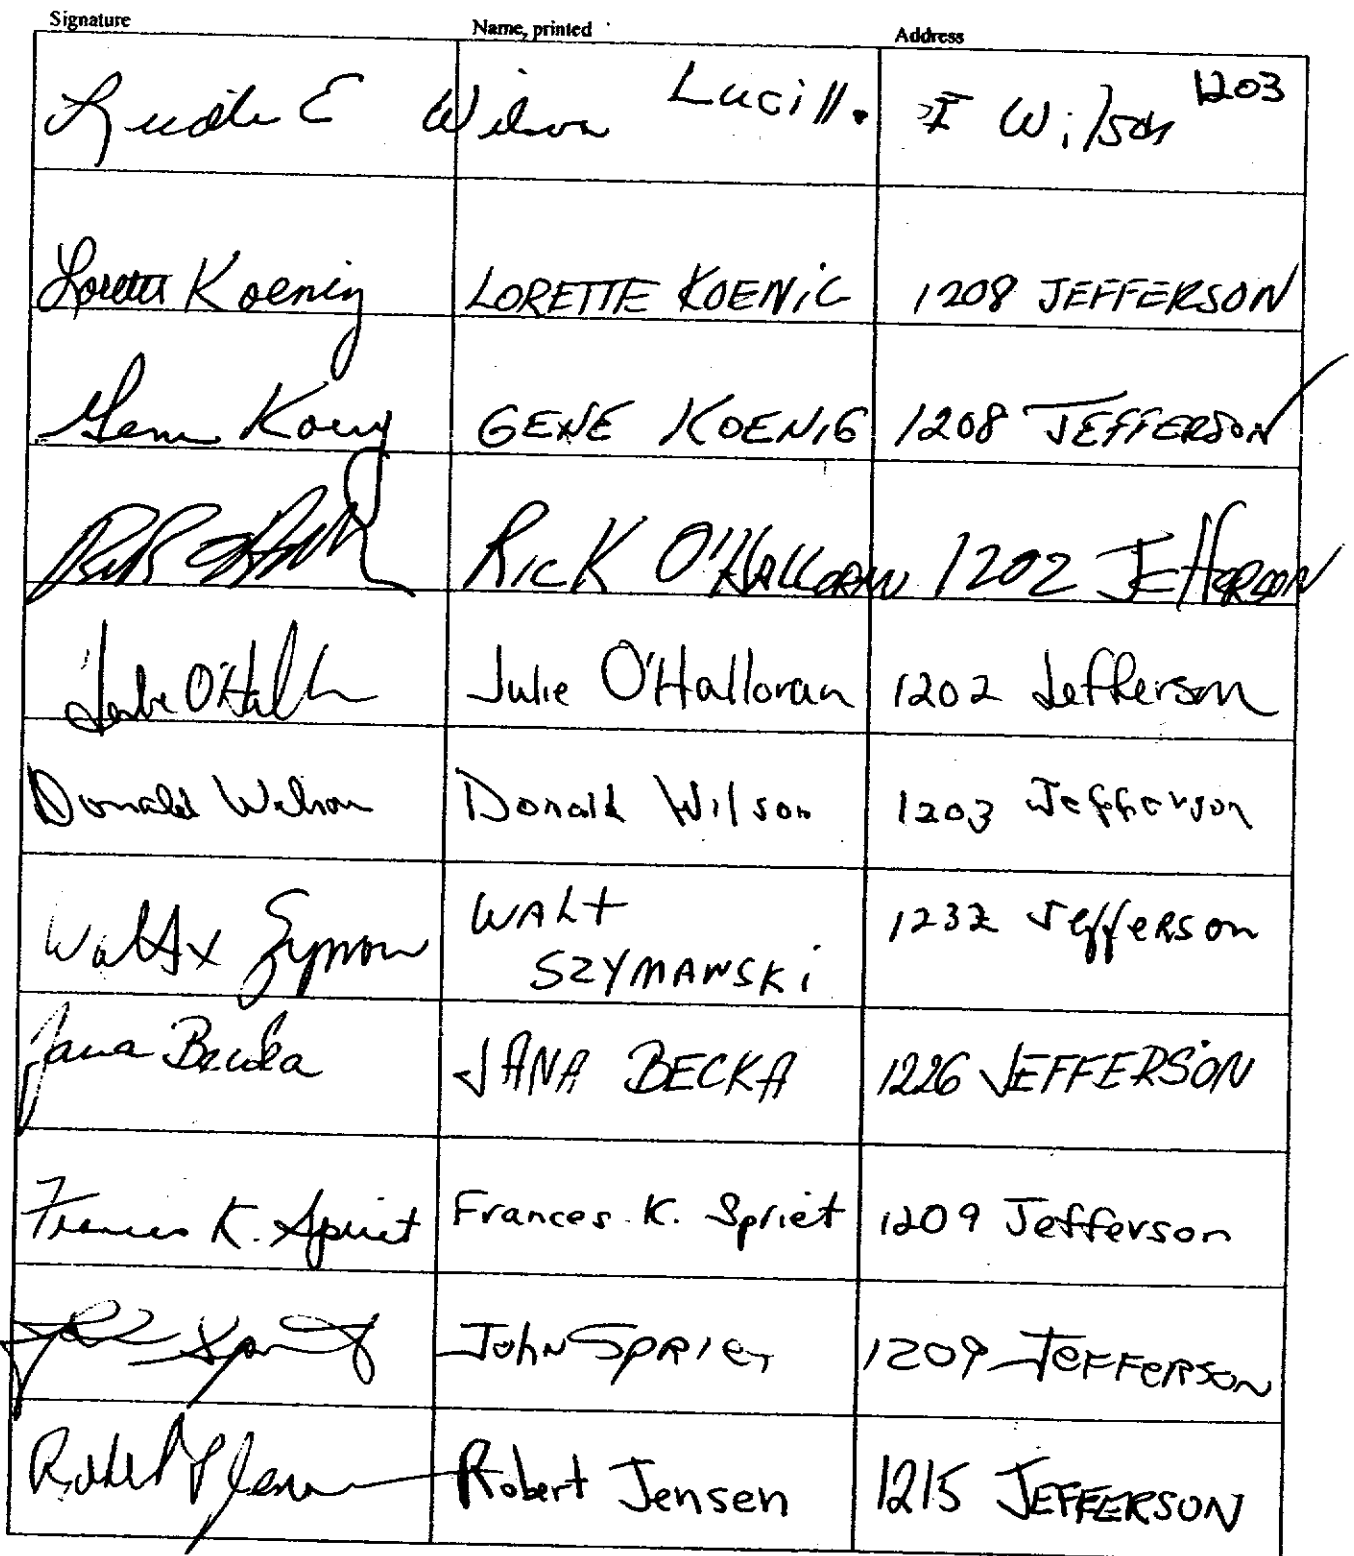 Signature Name, printed Address
Lucille E Wilson Lucill. E Wilson 1203
Lorette Koenig LORETTE KOENIG 1208 JEFFERSON
Gene Koenig GENE KOENIG 1208 JEFFERSON
RICK O'HALLORAN 1202 JEFFERSON
Julie O'Hall Julie O'Halloran 1202 Jefferson
Donald Wilson Donald Wilson 1203 Jefferson
Walt SZYMANSKI 1232 Jefferson
Jana Becka JANA BECKA 1226 JEFFERSON
Frances K. Spriet Frances K. Spriet 1209 Jefferson
John Spriet 1209 JEFFERSON
Robert Jensen Robert Jensen 1215 JEFFERSON